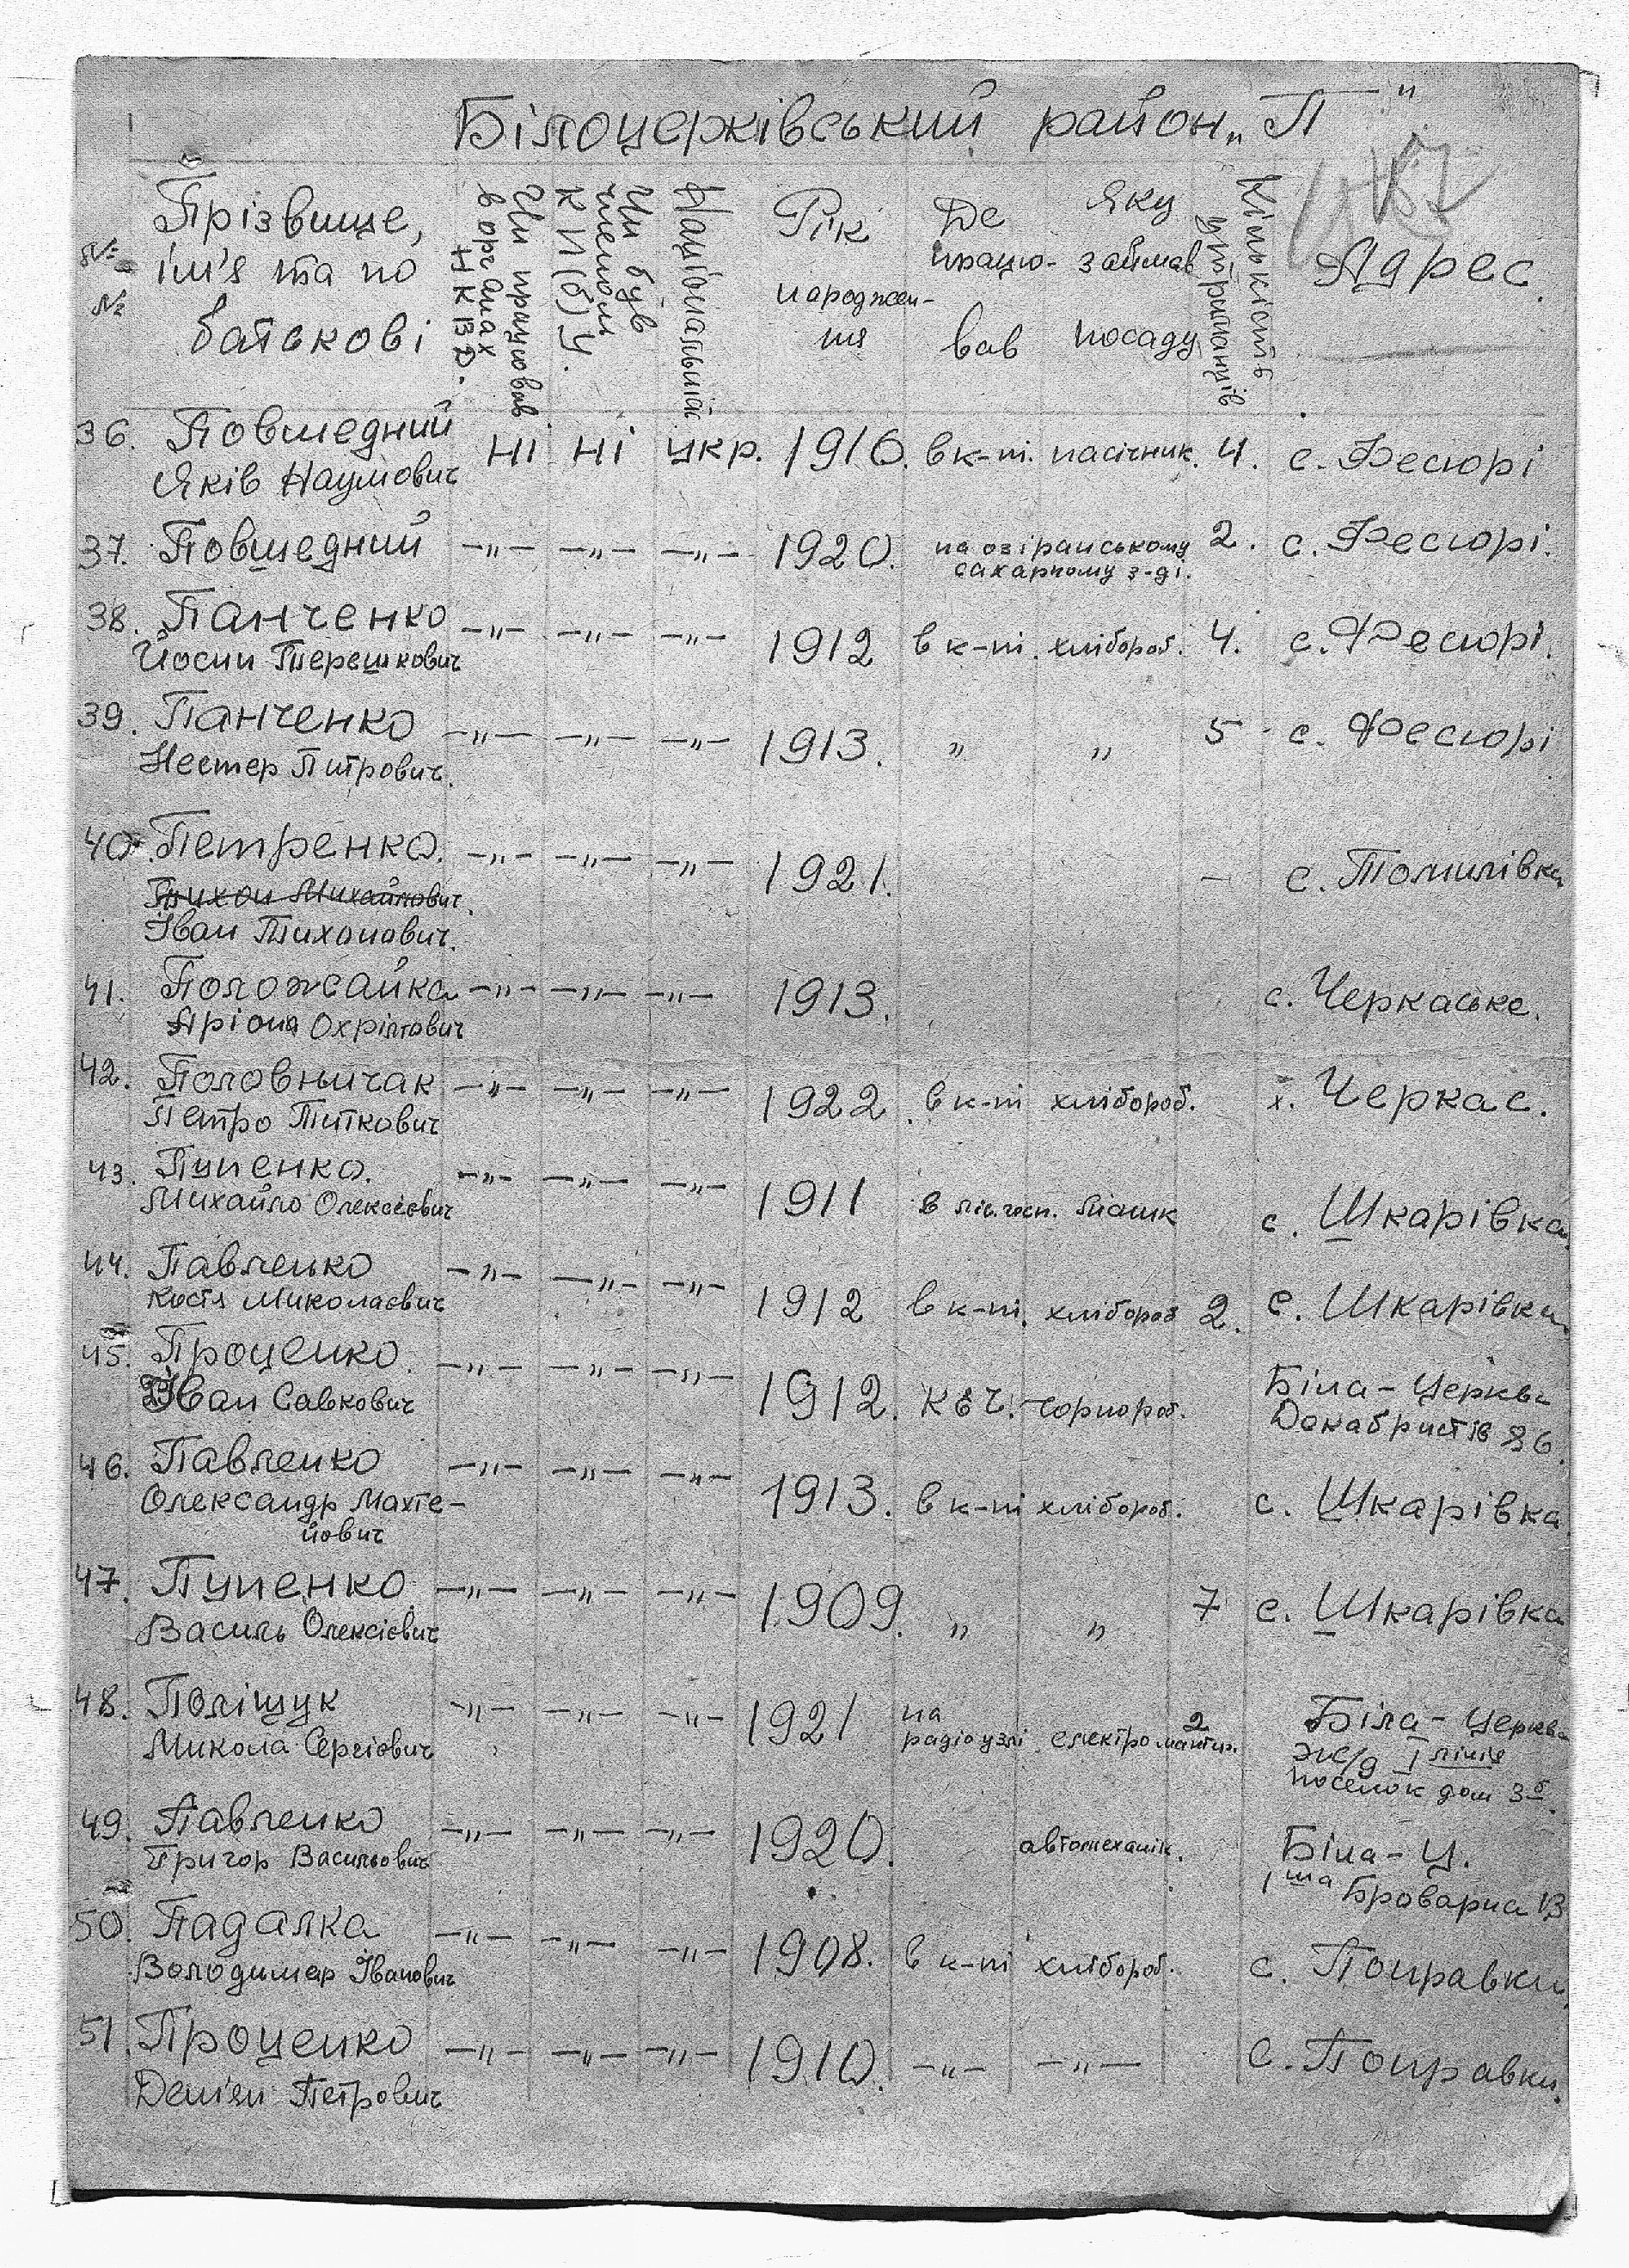 Білоцерківський район „П"
№ №
Прізвище, ім'я та по батькові
Чи працював в органах НКВД.
Чи був членом КП(б)У.
Національність
Рік народжен- ня
Де працю- вав
Яку займав посаду
Кількість утриманців
Адрес.
36. Повшедний ні ні укр. 1916. в к-пі. пасічник. 4. с. Фесюрі
Яків Наумович
37. Повшедний —„— —„— —„— 1920. на озірянському 2. с. Фесюрі.
сахарному з-ді.
38. Панченко —„— —„— —„— 1912 в к-пі. хлібороб. 4. с. Фесюрі.
Йосип Терешкович
39. Панченко —„— —„— —„— 1913. „ „ 5 с. Фесюрі
Нестер Питрович.
40. Петренко. —„— —„— —„— 1921. — с. Томилівка
Тихон Михайлович.
Іван Тихонович.
41. Положайка —„— —„— —„— 1913. с. Черкаське.
42. Половничак —„— —„— —„— 1922. в к-пі хлібороб. х. Черкас.
Петро Титкович
43. Пупенко. —„— —„— —„— 1911 в ліс.госп. с. Шкарівка.
Михайло Олексієвич
44. Павленко —„— —„— —„— 1912 в к-пі. хлібороб 2. с. Шкарівка.
Костя Миколаєвич
45. Проценко. —„— —„— —„— 1912. КЕЧ. чорнороб. Біла-Церква
Іван Савкович Декабристів 86.
46. Павленко —„— —„— —„— 1913. в к-пі хлібороб. с. Шкарівка.
Олександр Махте-
йович
47. Пупенко —„— —„— —„— 1909. „ „ 7 с. Шкарівка
Василь Олексієвич
48. Поліщук —„— —„— —„— 1921 на радіоузлі електромонтер. 2 Біла-Церква
Микола Сергіович ж/д I лінія
поселок дом 3б.
49. Павленко —„— —„— —„— 1920. автомеханік. Біла-Ц.
Григор Васильович 1ша Броварна 13
50. Падалка —„— —„— —„— 1908. в к-пі хлібороб. с. Поправки.
Володимер Іванович
51. Проценко —„— —„— —„— 1910. —„— —„— с. Поправки.
Демян Петрович